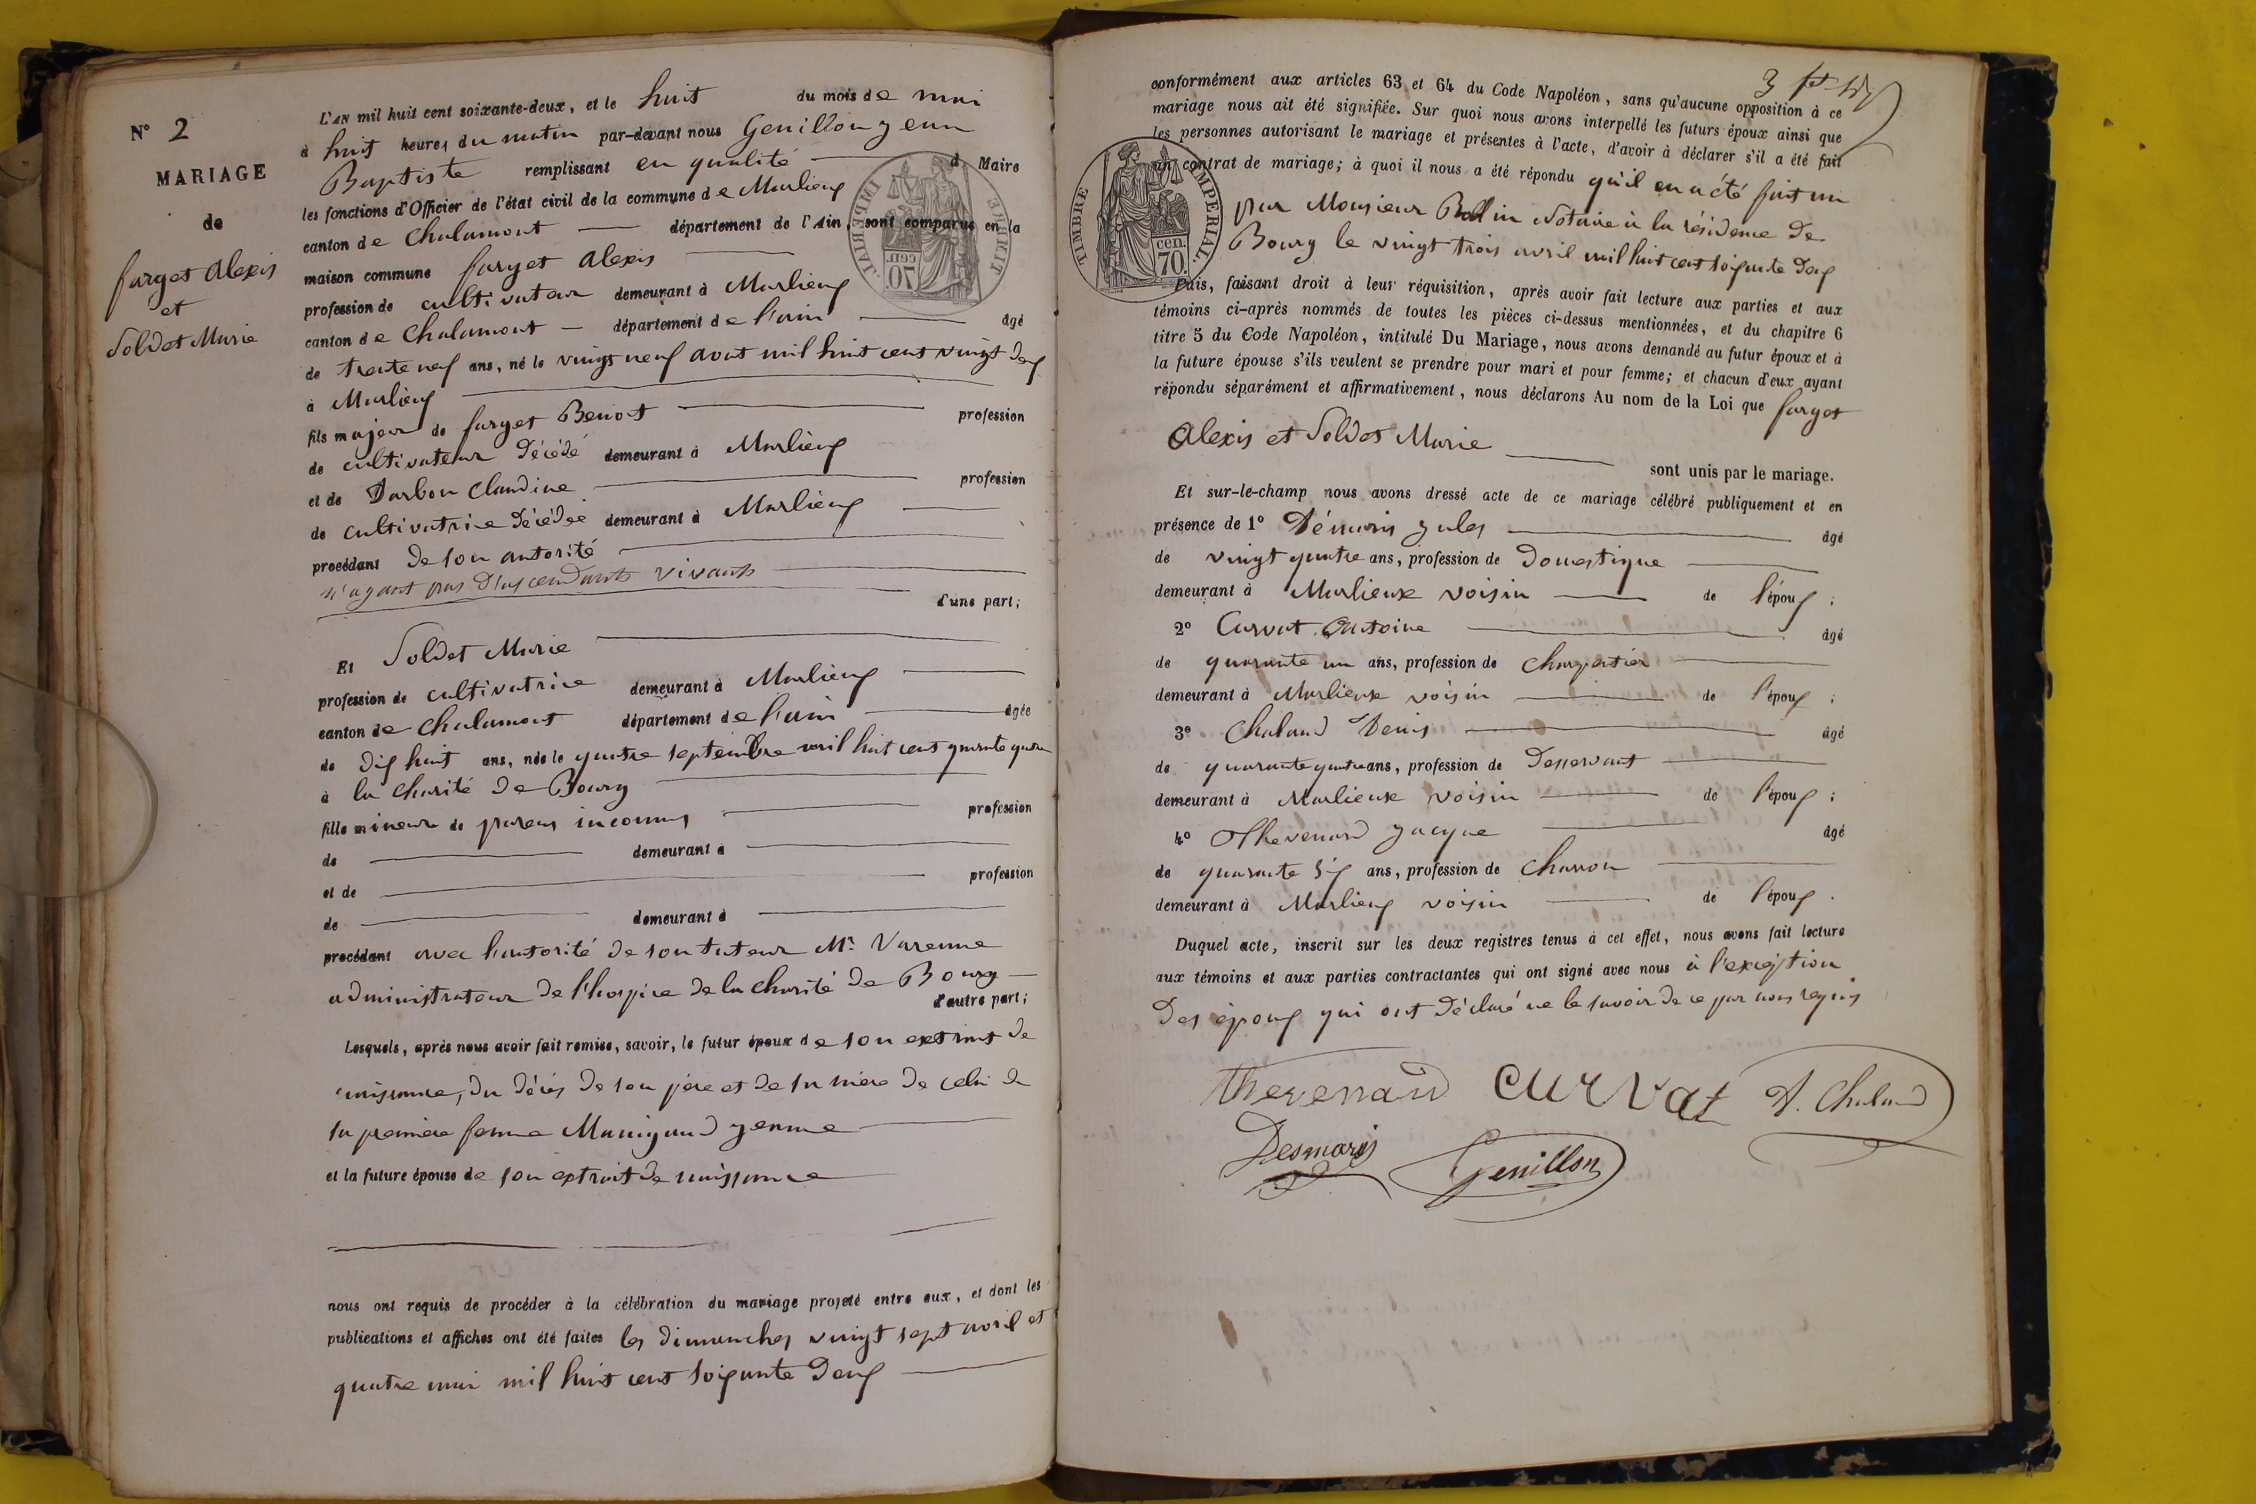 N° 2
MARIAGE
de
farget Alexis
et
Soldet Marie
L'AN mil huit cent soixante-deux, et le huit du mois de mai
à huit heures du matin par-devant nous Genillon jean
Baptiste remplissant en qualité d Maire
les fonctions d'Officier de l'état civil de la commune de Marlieux
canton de Chalamont département de l'Ain, sont comparus en la
maison commune farget Alexis
profession de cultivateur demeurant à Marlieux
canton de Chalamont département de l'ain âgé
de trente neuf ans, né le vingt neuf aout mil huit cent vingt deux
à Marlieux
fils majeur de farget Benoit profession
de cultivateur Décédé demeurant à Marlieux
et de Darbon Claudine profession
de cultivatrice Décédée demeurant à Marlieux
procédant de son autorité
n'ayant pas d'ascendants vivants
d'une part;
Et Soldet Marie
profession de cultivatrice demeurant à Marlieux
canton de Chalamont département de l'ain âgée
de dix huit ans, née le quatre septembre mil huit cent quarante quatre
à la charité de Bourg
fille mineure de parens inconnus profession
de demeurant à
et de profession
de demeurant à
procédant avec l'autorité de son tuteur Mr. Varenne
administrateur de l'hospice de la charité de Bourg
d'autre part;
Lesquels, après nous avoir fait remise, savoir, le futur époux de son extrait de
naissance, du décès de son père et de sa mère de celui de
sa première femme Manigand jeanne
et la future épouse de son extrait de naissance
nous ont requis de procéder à la célébration du mariage projeté entre eux, et dont les
publications et affiches ont été faites les dimanches vingt sept avril et
quatre mai mil huit cent soixante deux
conformément aux articles 63 et 64 du Code Napoléon, sans qu'aucune opposition à ce
mariage nous ait été signifiée. Sur quoi nous avons interpellé les futurs époux ainsi que
les personnes autorisant le mariage et présentes à l'acte, d'avoir à déclarer s'il a été fait
un contrat de mariage; à quoi il nous a été répondu qu'il en a été fait un
par Monsieur Notaire à la résidence de
Bourg le vingt trois avril mil huit cent soixante deux
TIMBRE IMPERIAL.
70. cen.
Puis, faisant droit à leur réquisition, après avoir fait lecture aux parties et aux
témoins ci-après nommés de toutes les pièces ci-dessus mentionnées, et du chapitre 6
titre 5 du Code Napoléon, intitulé Du Mariage, nous avons demandé au futur époux et à
la future épouse s'ils veulent se prendre pour mari et pour femme; et chacun d'eux ayant
répondu séparément et affirmativement, nous déclarons Au nom de la Loi que farget
Alexis et Soldet Marie
sont unis par le mariage.
Et sur-le-champ nous avons dressé acte de ce mariage célébré publiquement et en
présence de 1° Démaris jules âgé
de vingt quatre ans, profession de Domestique
demeurant à Marlieux voisin de l'époux;
2° Curvat Antoine âgé
de quarante un ans, profession de charpentier
demeurant à Marlieux voisin de l'époux;
3° Chaland Denis âgé
de quarante quatre ans, profession de Desservant
demeurant à Marlieux voisin de l'époux;
4° Thevenard jacque âgé
de quarante six ans, profession de charron
demeurant à Marlieux voisin de l'époux.
Duquel acte, inscrit sur les deux registres tenus à cet effet, nous avons fait lecture
aux témoins et aux parties contractantes qui ont signé avec nous à l'exception
Des époux qui ont déclaré ne le savoir de ce par nous requis
thevenard Curvat Chaland
Desmaris Genillon